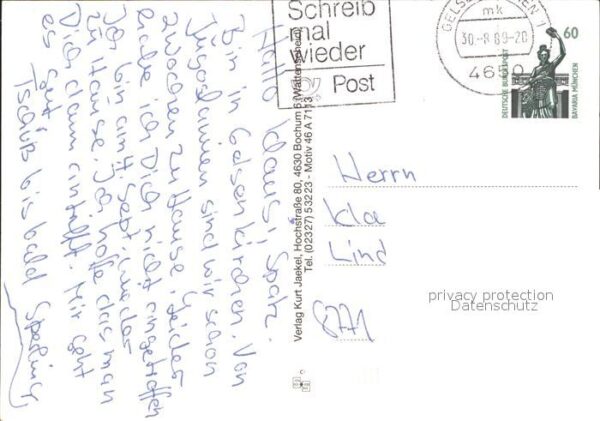 Hallo Klaus, Spatz.
Bin in Gelsenkirchen. Von
Jugoslawien sind wir schon
2 Wochen zu Hause. Leider
habe ich Dich nicht angetroffen
Ich bin am 4. Sept. wieder
zu Hause. Ich hoffe das man
Dich dann antrifft. Mir geht
es gut.
Tschüß bis bald Sperling
Verlag Kurt Jaekel, Hochstraße 80, 4630 Bochum 6 (Wattenscheid)
Tel. (02327) 53223 - Motiv 46 A 7113
Schreib
mal
wieder
Post
GELSENKIRCHEN 1
mk
30.-8.89-20
4650
60
DEUTSCHE BUNDESPOST
BAVARIA MÜNCHEN
Herrn
Kla
Lind
8771
privacy protection
Datenschutz